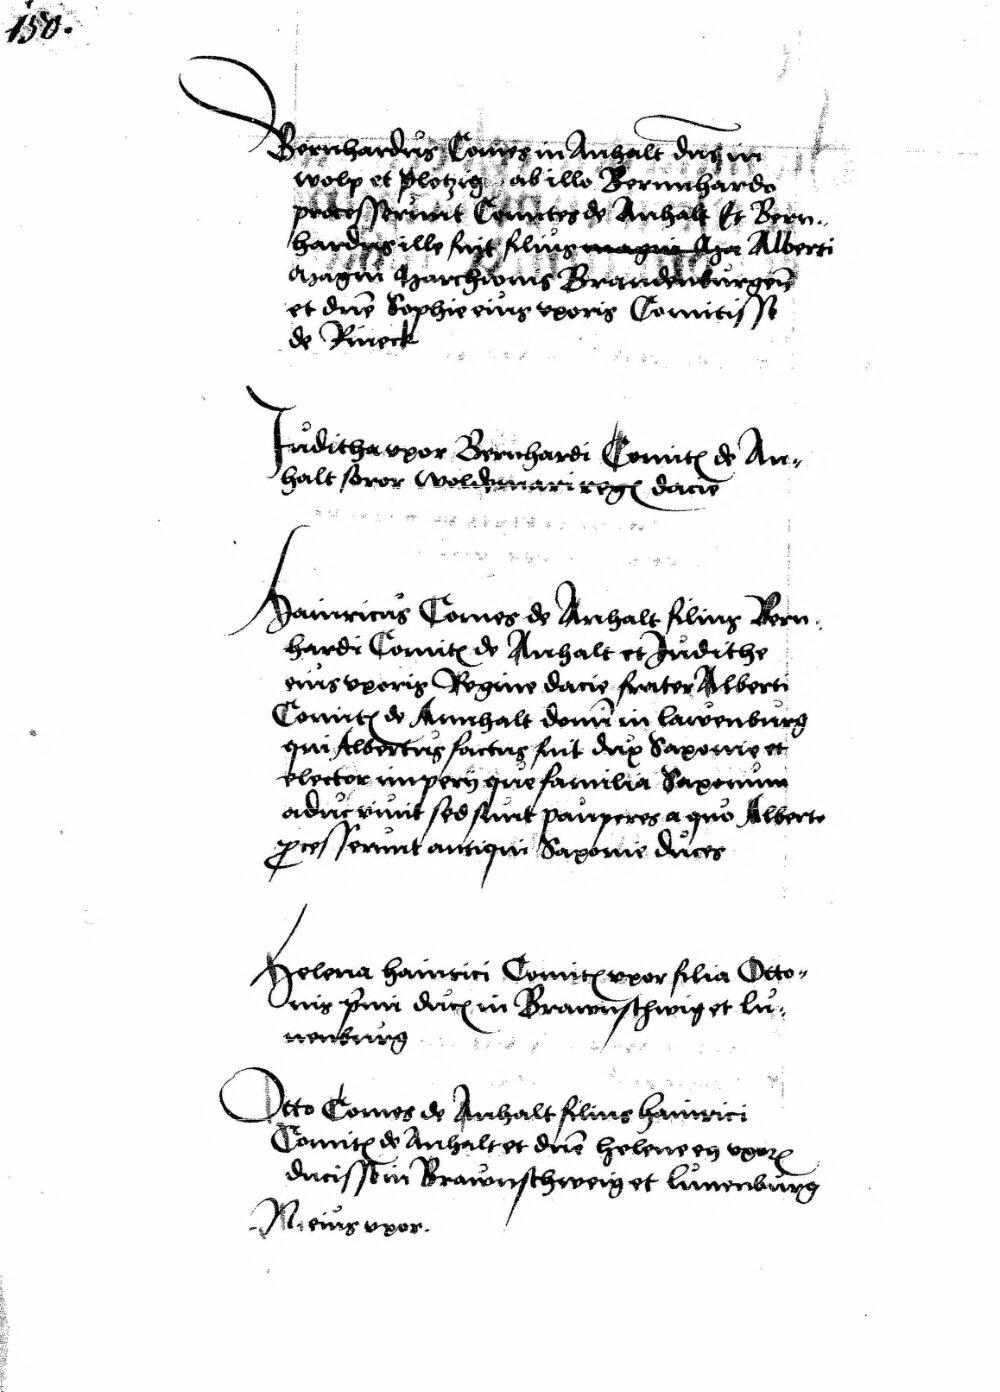 150.
Bernhardus Comes in Anhalt dns in
wolp et Plotzig ab illo Bernnhardo
processerunt Comites de Anhalt Et Bern-
hardus ille fuit filius magni Ma Alberti
Magni Marchionis Brandenburgen
et dne Sophie eius vxoris Comitisse
de Rineck
Juditha vxor Bernhardi Comit de An-
halt soror Woldemari reg dacie
Hainricus Comes de Anhalt filius Bern-
hardi Comit de Anhalt et Judithe
eius vxoris Regine dacie frater Alberti
Comit de Annhalt domi in lawenburg
qui Albertus factus fuit dux Saxonie et
elector imperij que familia Saxonum
aduc viuit sed sunt pauperes a quo Alberto
pcesserunt antiqui Saxonie duces
Helena hainrici Comit vxor filia Otto-
nis pmi duc in Brawnschwig et lu-
nenburg
Otto Comes de Anhalt filius hainrici
Comit de Anhalt et dne helene ei vxor
ducisse in Brawnschweig et lunenburg
N. eius vxor.